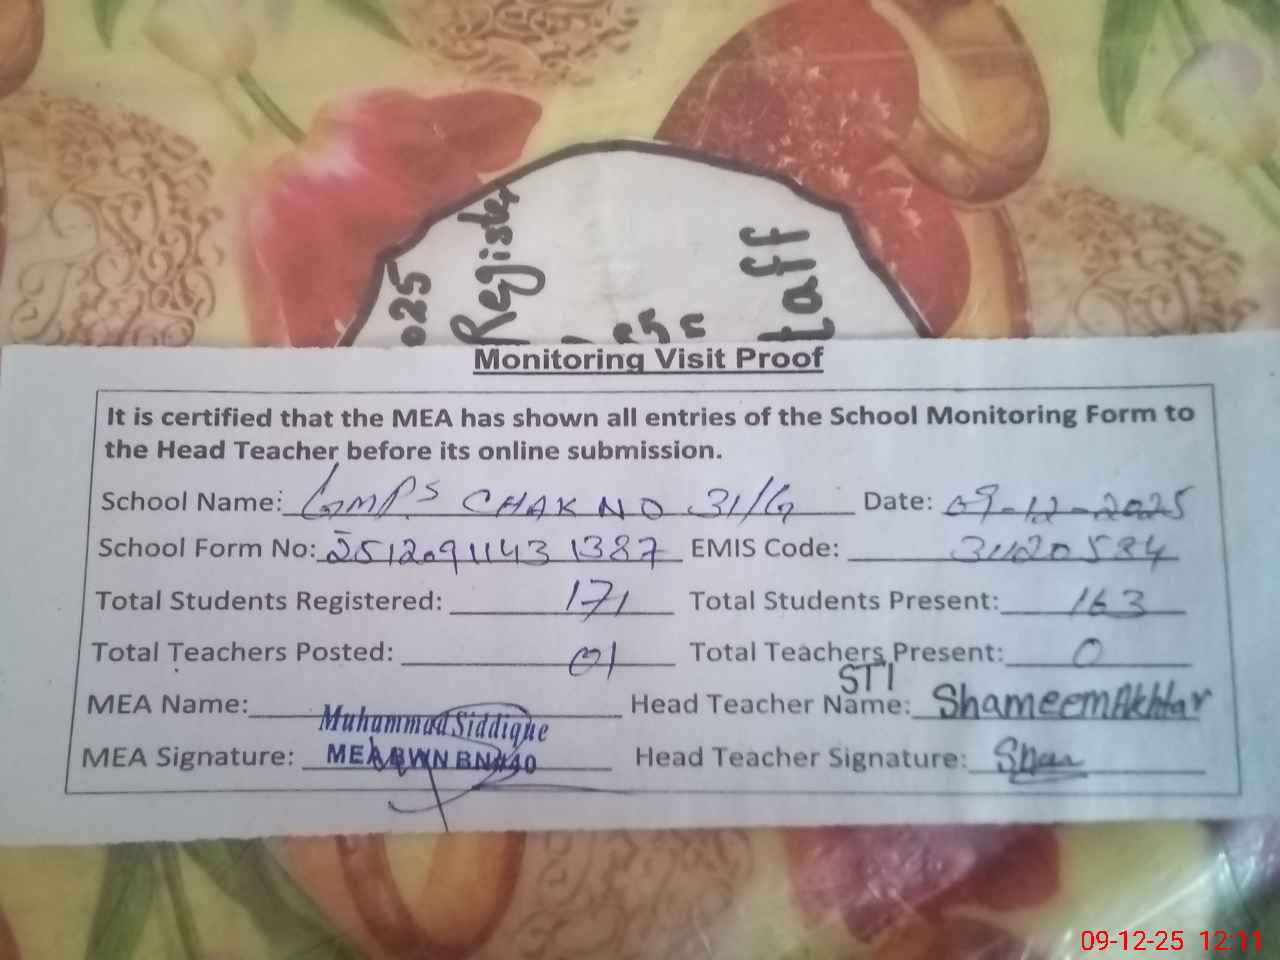 025
Register
taff
Monitoring Visit Proof
It is certified that the MEA has shown all entries of the School Monitoring Form to
the Head Teacher before its online submission.
School Name: GMPS CHAK NO 31/G Date: 09-12-2025
School Form No: 2512091143 1387 EMIS Code: 31120584
Total Students Registered: 171 Total Students Present: 163
Total Teachers Posted: 01 Total Teachers Present: 0
STI
MEA Name: Muhammad Siddique Head Teacher Name: Shameem Akhtar
MEA Signature: MEA BWN BN#40 Head Teacher Signature:
09-12-25 12:11